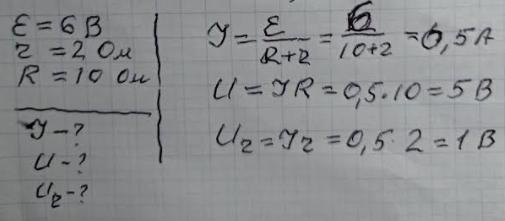 ε = 6 В
r = 2 Ом
R = 10 Ом
I - ?
U - ?
Ur - ?
I = ε/(R+r) = 6/(10+2) = 0,5 А
U = IR = 0,5·10 = 5 В
Ur = Ir = 0,5·2 = 1 В